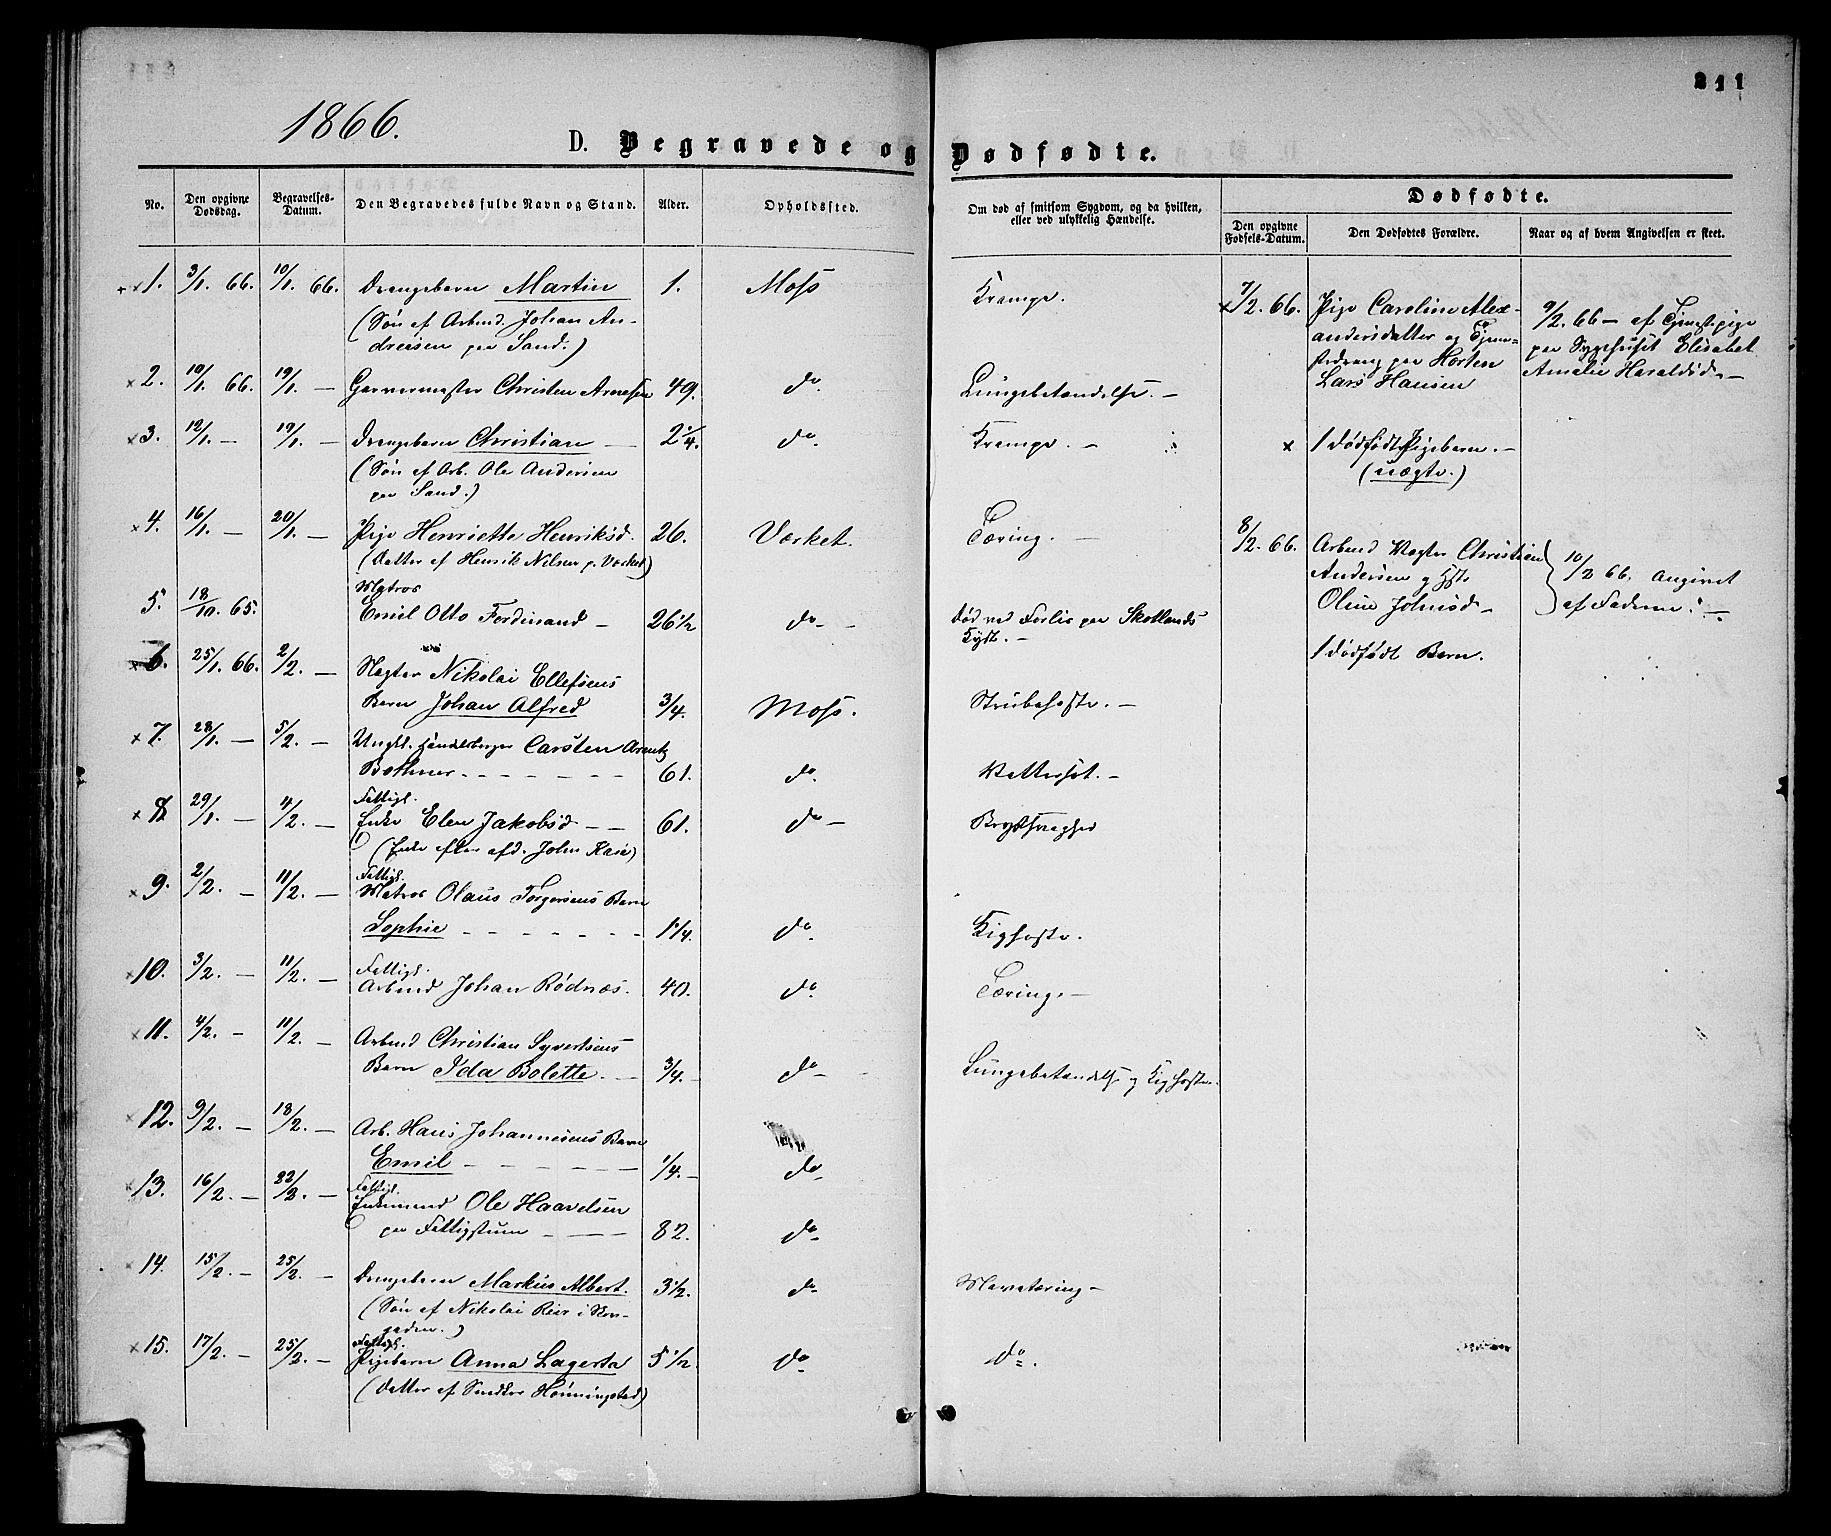 211
1866.
D. Begravede og Dødfødte.
No.
Den opgivne Dødsdag.
Begravelses-Datum.
Den Begravedes fulde Navn og Stand.
Alder.
Opholdssted.
Om død af smitsom Sygdom, og da hvilken, eller ved ulykkelig Hændelse.
Dødfødte.
Den opgivne Fødsels-Datum.
Den Dødfødtes Forældre.
Naar og af hvem Angivelsen er skeet.
1. 3/1. 66. 10/1. 66. Drengebarn Martin 1. Moss Krampe.
(Søn af Arbmd. Johan An-
dreasen paa Sand.)
2. 10/1. 66. 19/1. — Garvermester Christen Arnesen 49. do. Lungebetændelse. —
3. 12/1. — 19/1. — Drengebarn Christian — 2 1/4. do. Krampe. —
(Søn af Arb. Ole Andersen
paa Sand.)
4. 16/1. — 20/1. — Pige Henriette Henriksd. 26. Værket. Tæring. —
(Datter af Henrik Nilsen p. Værket)
5. 18/10. 65. Matros
Emil Otto Ferdinand — 26 1/2 do — død ved Forlis paa Skotlands
Kyst. —
6. 25/1. 66. 2/2. — Vægter Nikolai Ellefsens
Barn Johan Alfred 3/4. Moss. Strubehoste. —
7. 28/1. — 5/2. — Ungk. Handelsborger Carsten Arentz
Bothner — 61. do. Vattersot. —
8. 29/1. — 4/2. — Fattigl.
Enke Elen Jakobsd — — 61. do — Brystsvaghed
(Enke efter afd. John Kase)
9. 2/2. — 11/2. — Fattigl.
Matros Olaus Torgersens Barn
Sophie — 1 1/4. do. Kighoste.
10. 3/2. — 11/2. — Fattigl.
Arbmd Johan Rødnæs. 40. do. Tæring. —
11. 4/2. — 11/2. — Arbmd Christian Syvertsens
Barn Ida Bolette. — 3/4. — do — Lungebetændelse og Kighoste.
12. 9/2. — 18/2. — Arb. Hans Johannesens Barn
Emil — 1/4. — do
13. 16/2. — 22/2. — Fattigl.
Enkemand Ole Haavelsen
paa Fattigstuen — 82. do
14. 15/2. — 25/2. — Drengebarn Markus Albert. 3 1/2. do Mavetæring —
(Søn af Nikolai Reier i Stor-
gaden.)
15. 17/2. — 25/2. — Fattigl.
Pigebarn Anna Lagerta 5 1/2. do do.
(Datter af Snedker Hønningstad)
7/2. 66. Pige Caroline Alex-
andersdatter og Tjene-
stedreng paa Horten
Lars Hansen
9/2. 66 — af Tjenestepige
paa Sygehuset Elisabet
Amalie Haraldsd. —
1 dødfødt Pigebarn. —
(uægte.)
8/2. 66. Arbmd Vægter Christian
Andersen og Hstr.
Oline Johnsd —
10/2 66. Angivet
af Faderen. —
1 dødfødt Barn.